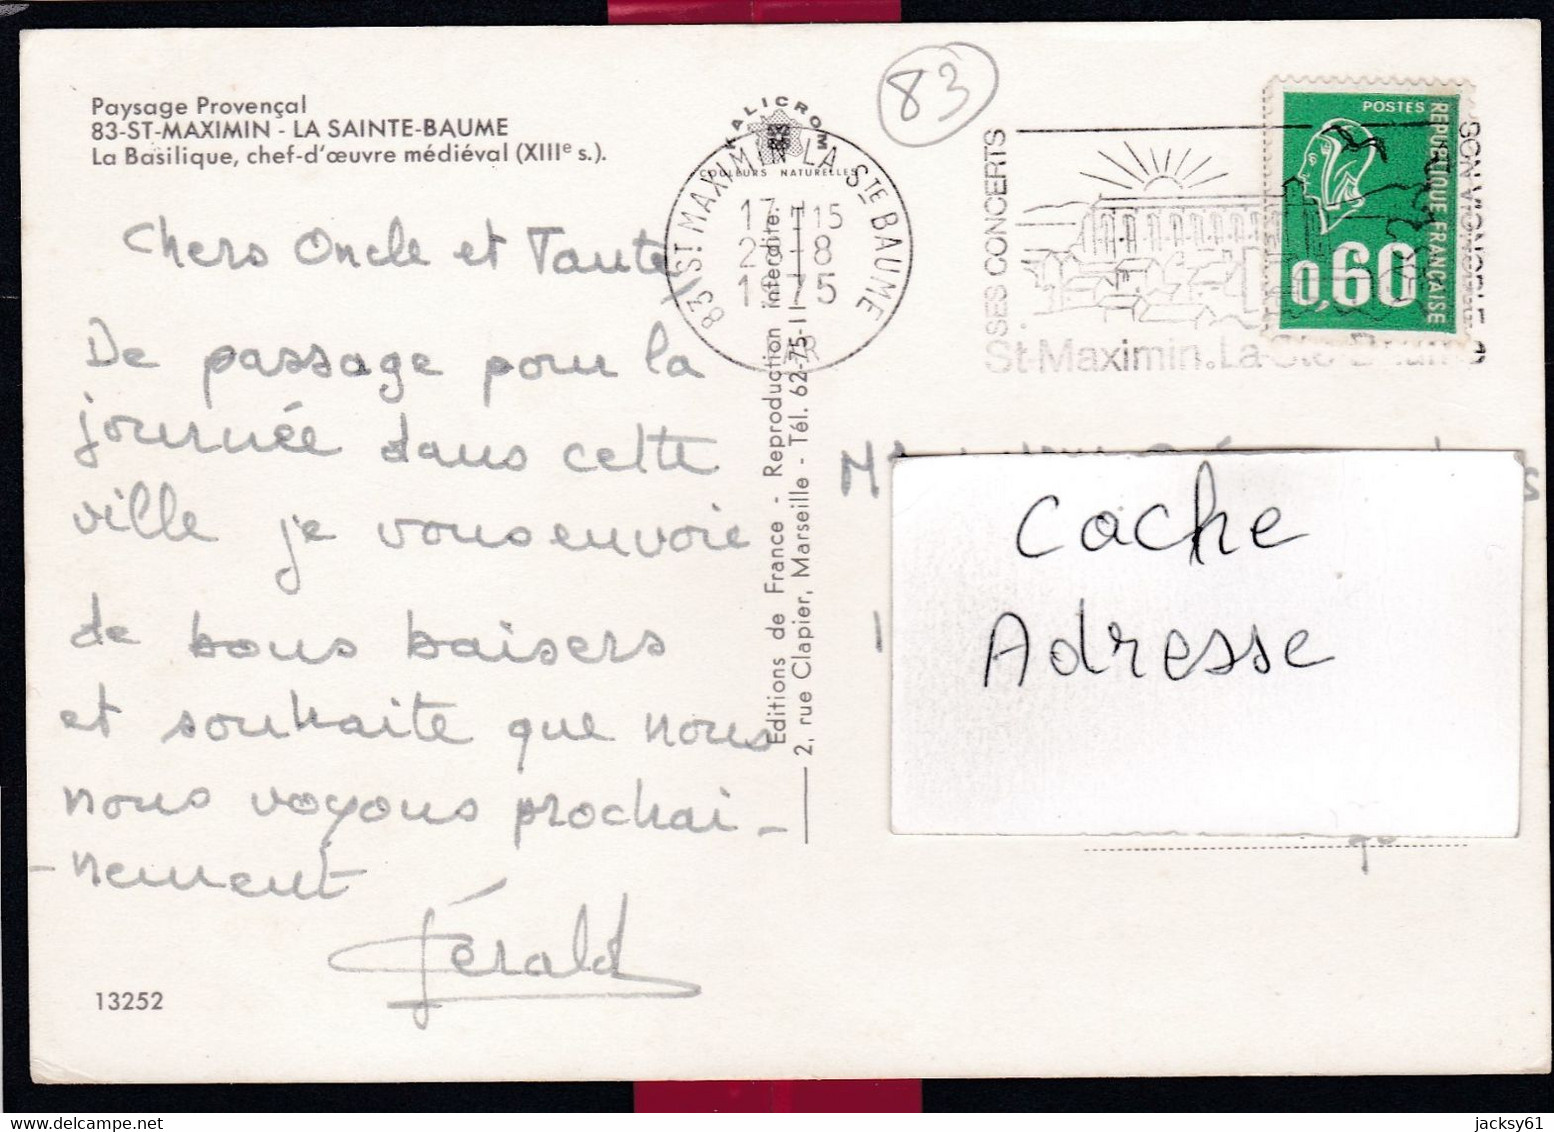 Paysage Provençal
83-ST-MAXIMIN - LA SAINTE-BAUME
La Basilique, chef-d'œuvre médiéval (XIIIe s.).
Chers Oncle et Tante
De passage pour la
journée dans cette
ville je vous envoie
de bons baisers
et souhaite que nous
nous voyons prochai-
-nement
Gérald
13252
KALICROM
COULEURS NATURELLES
83 ST MAXIMIN LA STE BAUME
17 H 15
-8
1975
VAR
Editions de France - Reproduction interdite.
2, rue Clapier, Marseille - Tél. 62-75-11
83
SES CONCERTS
St-Maximin.La-Ste-Baume
POSTES
REPUBLIQUE FRANÇAISE
0,60
Cache
Adresse
jacksy61